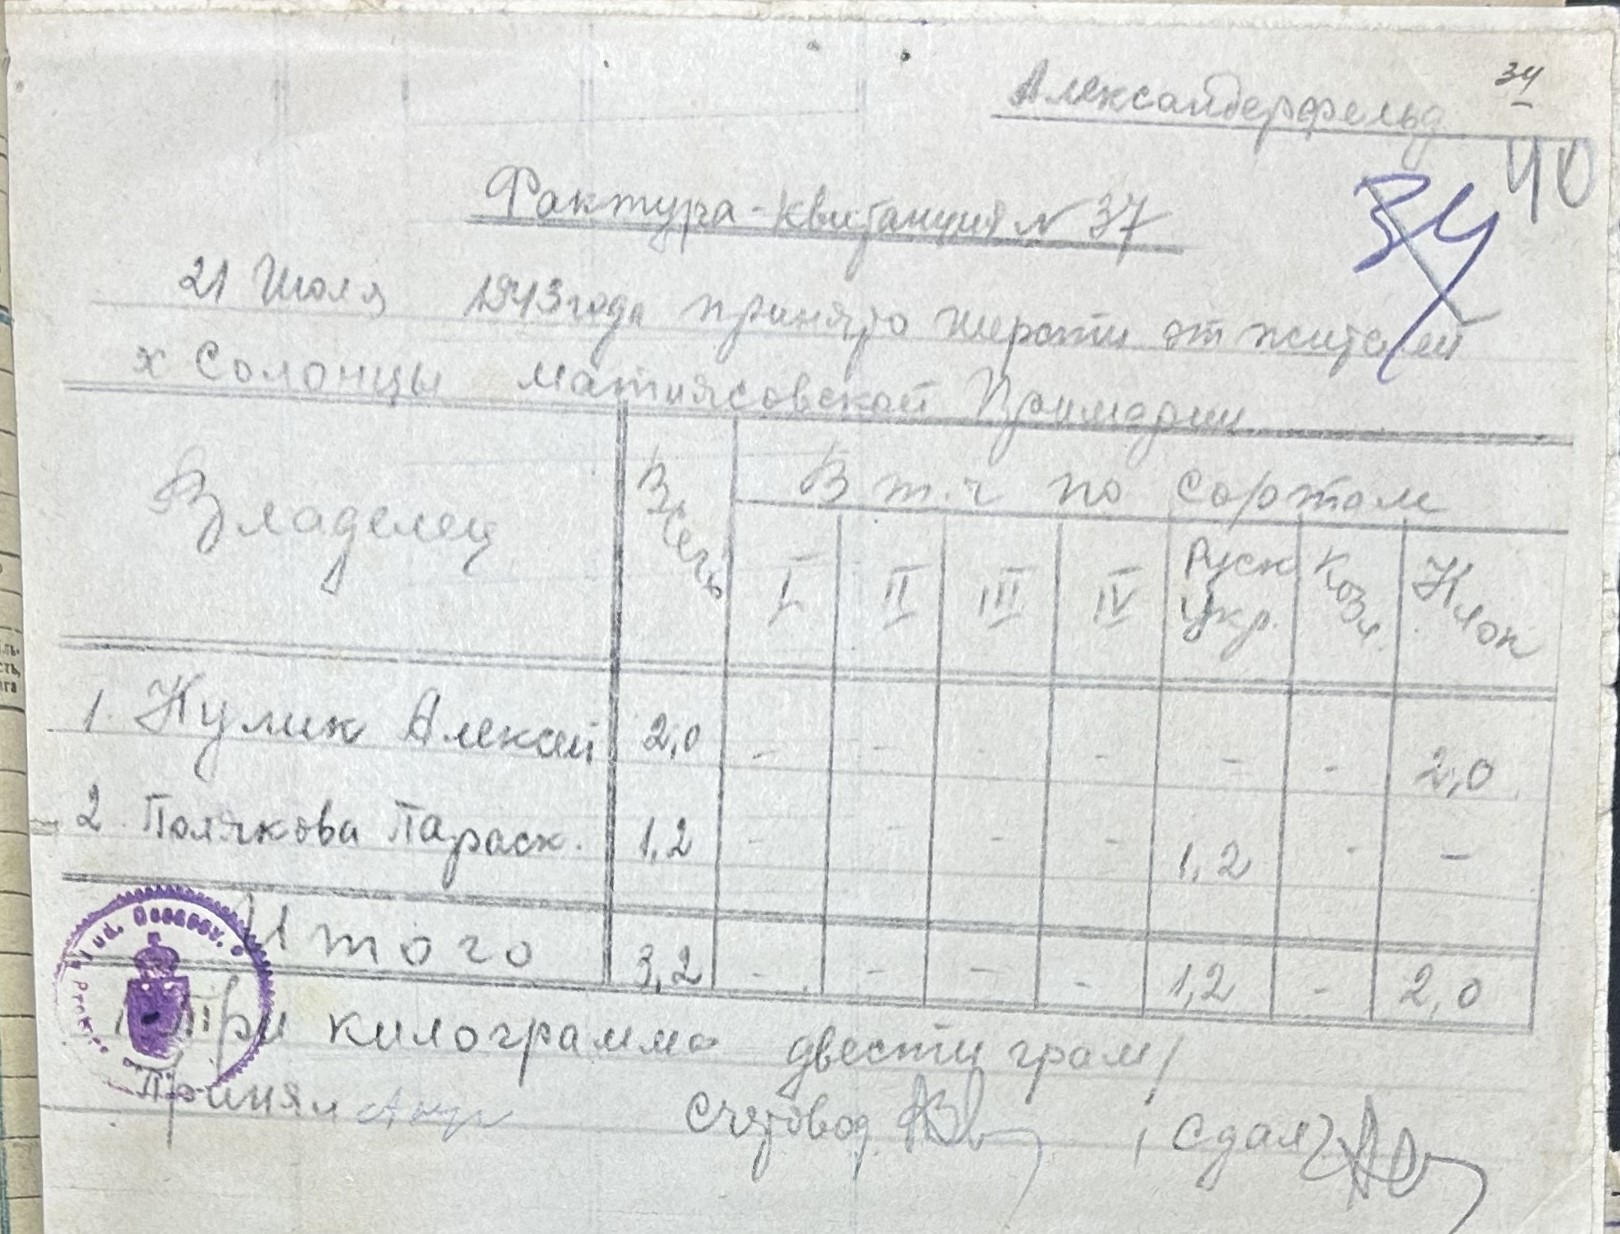 34
Александерфельд
40
34
Фактура-квитанция № 37
21 Июля 1943 года принято шерсти от жителей
х Солонцы матиясовской Примарии
Владелец Всего В т.ч по сортам
I II III IV Руск Укр. Козл. Клок
1. Кулик Алексей 2,0 - - - - - - 2,0
2. Полякова Параск. 1,2 - - - - 1,2 - -
Итого 3,2 - - - - 1,2 - 2,0
/ Три килограмма двести грам/
Принял Счетовод Сдал
Jud.